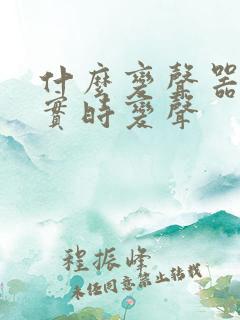 什麼變聲器
實時變聲
程振峰
未經同意禁止轉載